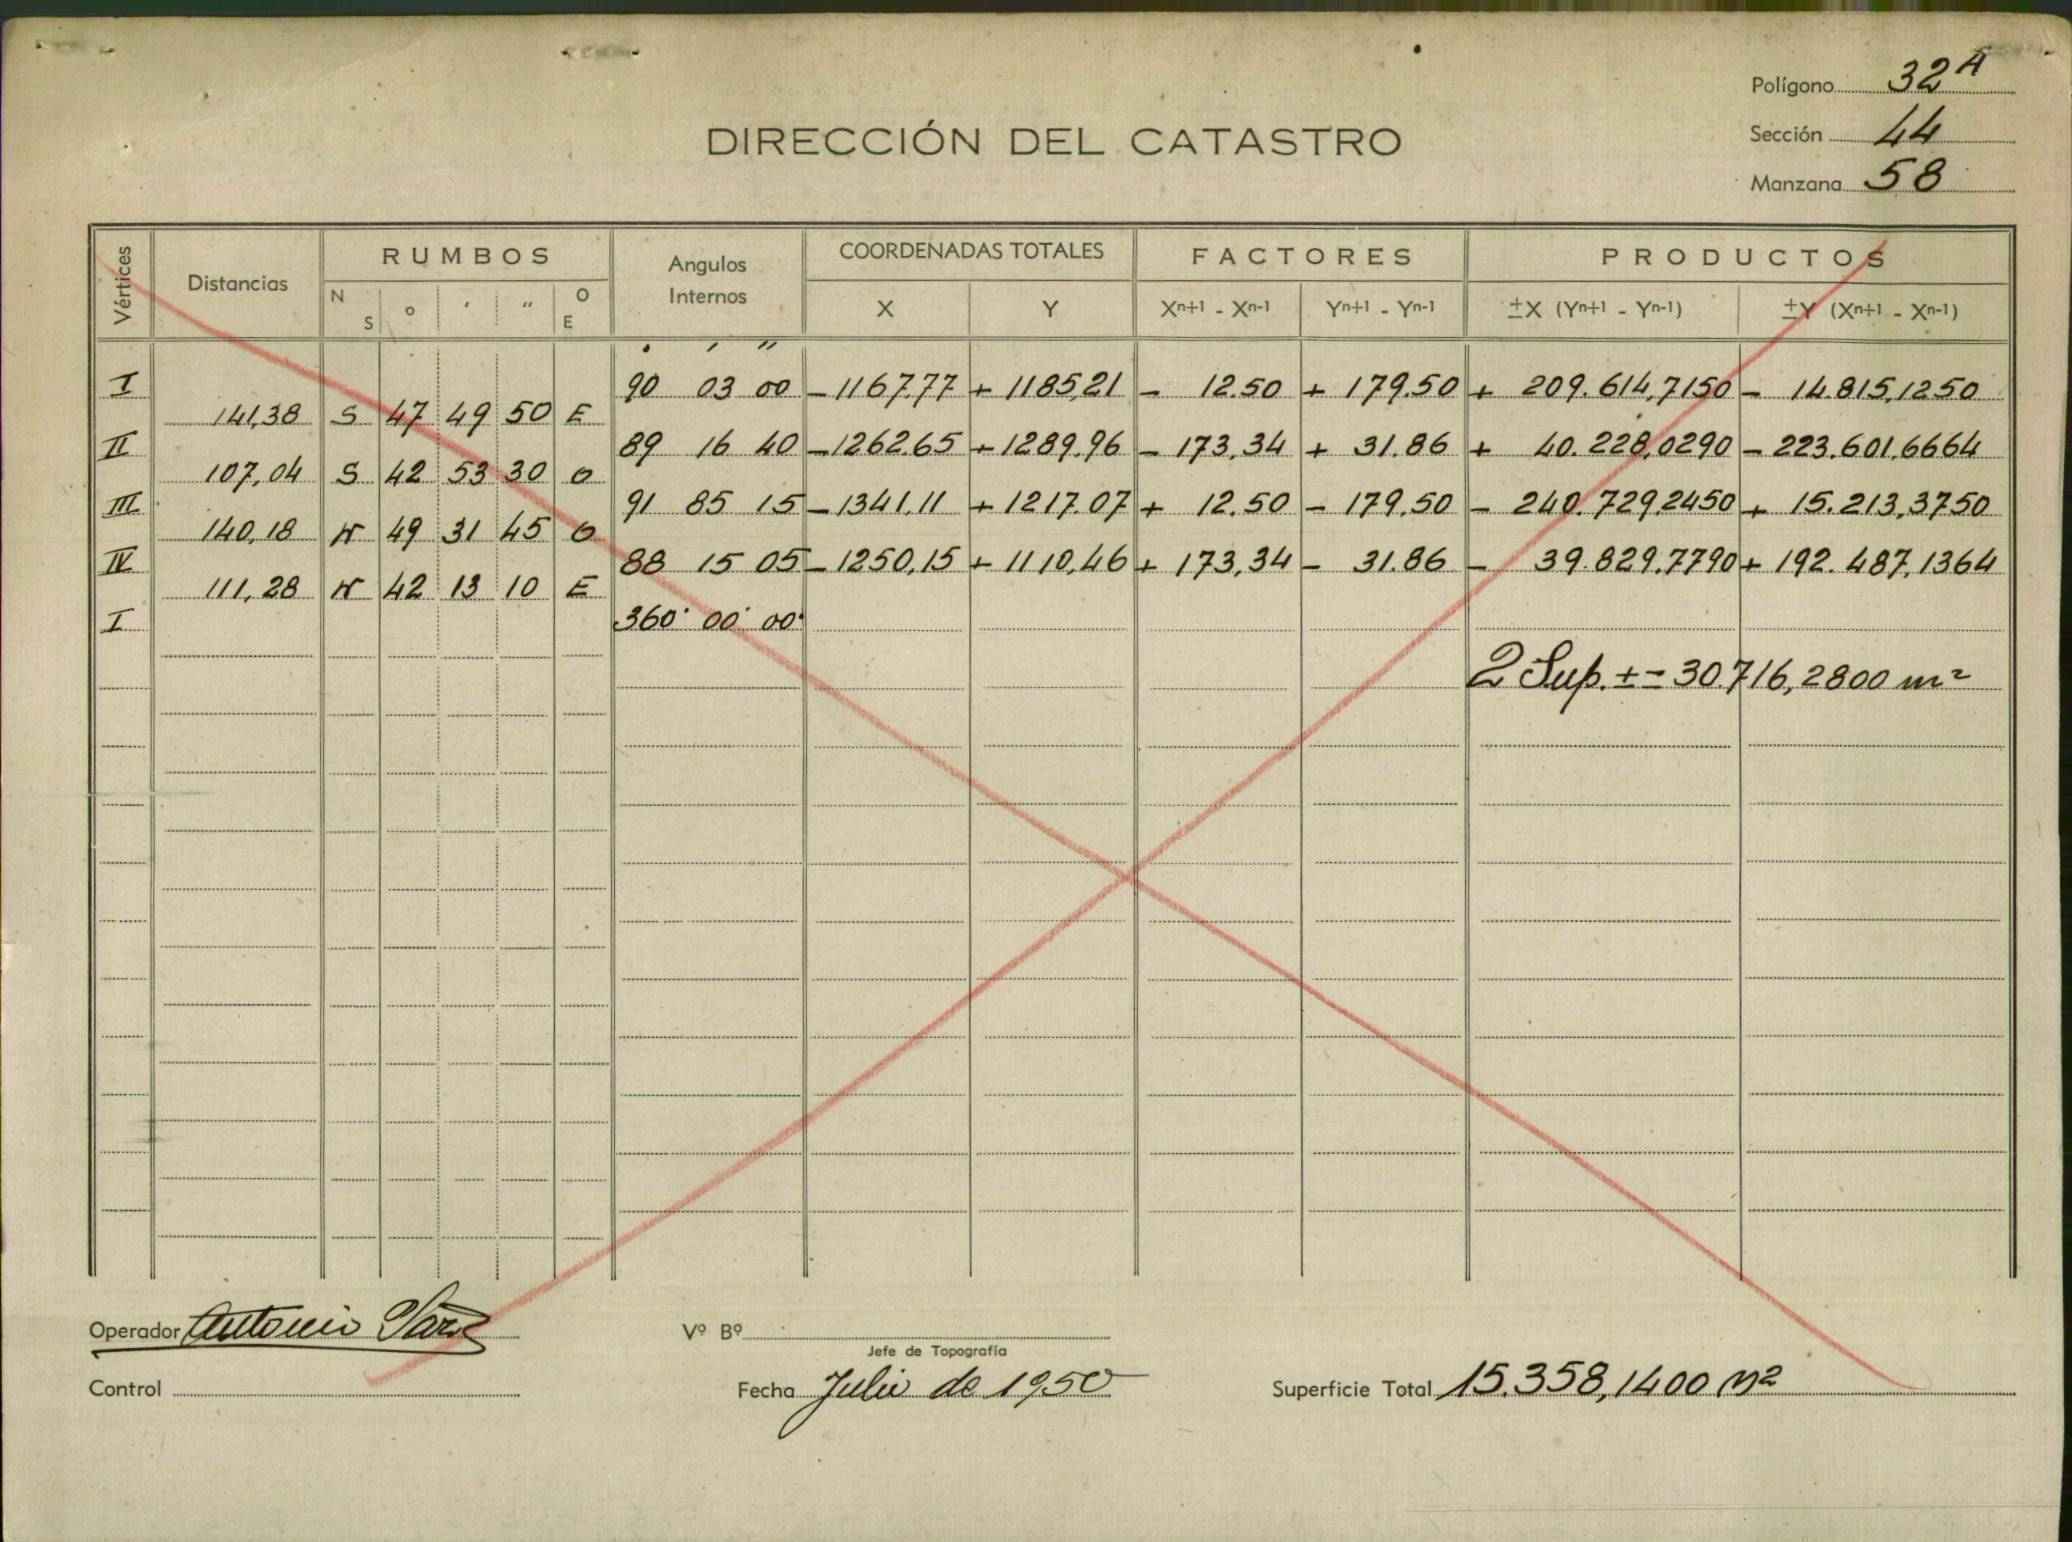 Polígono 32A
DIRECCIÓN DEL CATASTRO
Sección 44
Manzana 58
Vértices Distancias RUMBOS Angulos Internos COORDENADAS TOTALES FACTORES PRODUCTOS
N S o ' " O E X Y Xn+1 - Xn-1 Yn+1 - Yn-1 ±X (Yn+1 - Yn-1) ±Y (Xn+1 - Xn-1)
° ' "
I 90 03 00 -1167.77 + 1185,21 - 12.50 + 179.50 + 209.614,7150 - 14.815,1250
141,38 S 47 49 50 E
II 89 16 40 -1262.65 +1289,96 - 173,34 + 31.86 + 40.228,0290 - 223.601,6664
107,04 S 42 53 30 O
III 91 85 15 -1341,11 + 1217.07 + 12.50 - 179.50 - 240.729,2450 + 15.213,3750
140,18 N 49 31 45 O
IV 88 15 05 -1250,15 + 1110,46 + 173,34 - 31.86 - 39.829,7790 + 192.487,1364
111,28 N 42 13 10 E
I 360° 00' 00"
2 Sup. ± = 30.716,2800 m²
Operador Antonio
Vº Bº
Jefe de Topografía
Control
Fecha Julio de 1950
Superficie Total 15.358,1400 M2